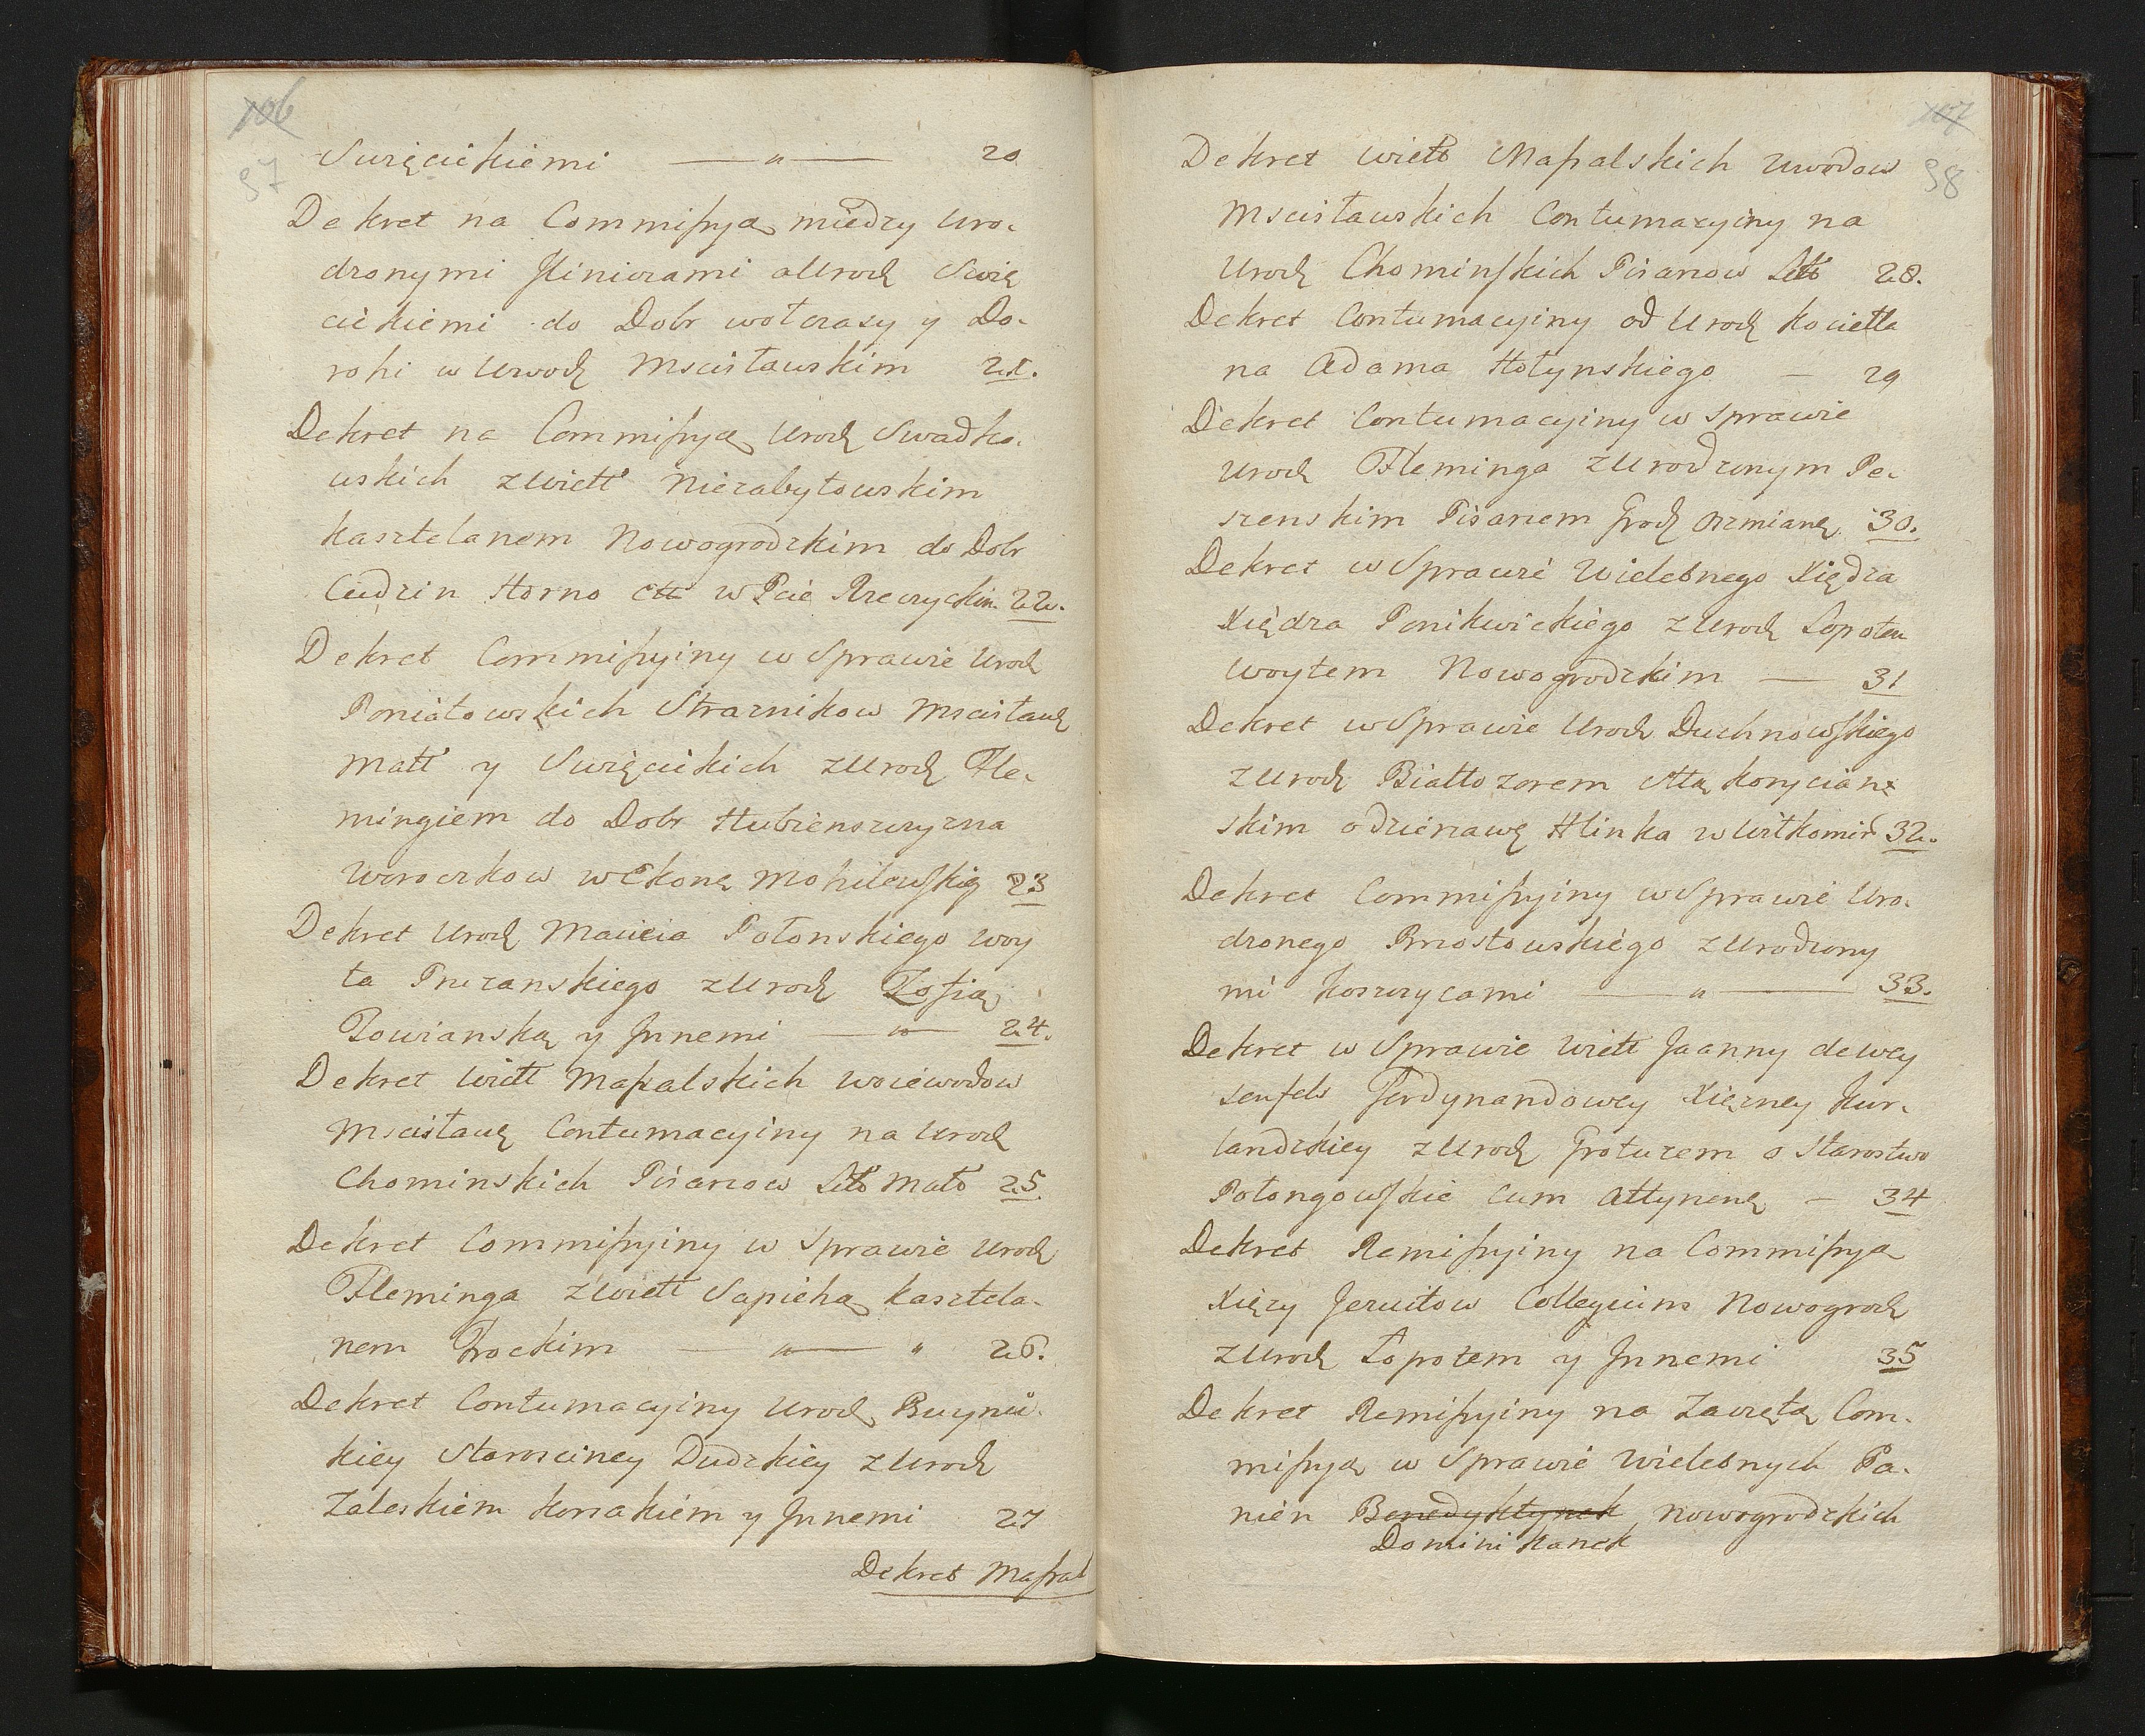 106
97
Swięcickiemi — „ — 20
Dekret na Commissyą między Uro-
dzonymi Jliniczami a Urodz Swię
cickiemi do Dobr wotczasy y Do-
rohi w Uwodz Mscisławskim 21.
Dekret na Commissyą Urodz Swadko-
wskich z Wielł Niezabytowskim
Kasztelanem Nowogrodzkim do Dobr
Cudzin Horno Ett w Pcie Rzeczyckim 22.
Dekret Commissyiny w Sprawie Urodz
Poniatowskich Straznikow Mscisławę
Małł y Swięcickich z Urodz Fle-
mingiem do Dobr Hubienszczyzna
Woroczkow w Ekonę Mohilewskię 23
Dekret Urodz Macieia Połonskiego Woy
ta Pruzanskiego z Urodz Zofią
Towianską y Jnnemi — „ — 24.
Dekret Wiełł Massalskich Woiewodow
Mscisławę Contumacyiny na Urodz
Chominskich Pisarzow Litt Małż 25.
Dekret Commissyiny w Sprawie Urodz
Fleminga z Wielł Sapiehą Kasztela-
nem Trockim — „ — „ 26.
Dekret Contumacyiny Urodz Buynic-
kiey Starosciney Dudzkiey z Urodz
Zaleskiem Korsakiem y Jnnemi 27
Dekret Massal
107
98
Dekret Wielż Massalskich Uwodow
Mscisławskich Contumacyiny na
Urodz Chominskich Pisarzow Litt 28.
Dekret Contumacyiny od Urodz Kociełła
na Adama Hołynskiego — 29
Dekret Contumacyiny w Sprawie
Urodz Fleminga z Urodzonym Pe-
szenskim Pisarzem Grodz Oszmianę 30.
Dekret w Sprawie Wielebnego Xiędza
Xiędza Ponikwickiego z Urodz Łopotem
Woytem Nowogrodzkim — 31
Dekret w Sprawie Urodz Duchnowskiego
z Urodz Białłozorem Stą Korycian
skim o dzierzawę Hlinka w Wiłkomir 32.
Dekret Commissyiny w Sprawie Uro-
dzonego Brzostowskiego z Urodzony
mi Koszczycami — „ — 33.
Dekret w Sprawie Wiełł Jaanny de Wey
senfels Ferdynandowey Xiężney Kur-
landzkiey z Urodz Grotuzem o Starostwo
Połongowskie cum Attynenę — 34
Dekret Remissyiny na Commissya
Xięży Jezuitow Collegium Nowogrodz
z Urodz Łopotem y Jnnemi 35
Dekret Remissyiny na Zawiętą Com-
missyą w Sprawie Wielebnych Pa-
nien Benedyktynek Nowogrodzkich
Dominikanek